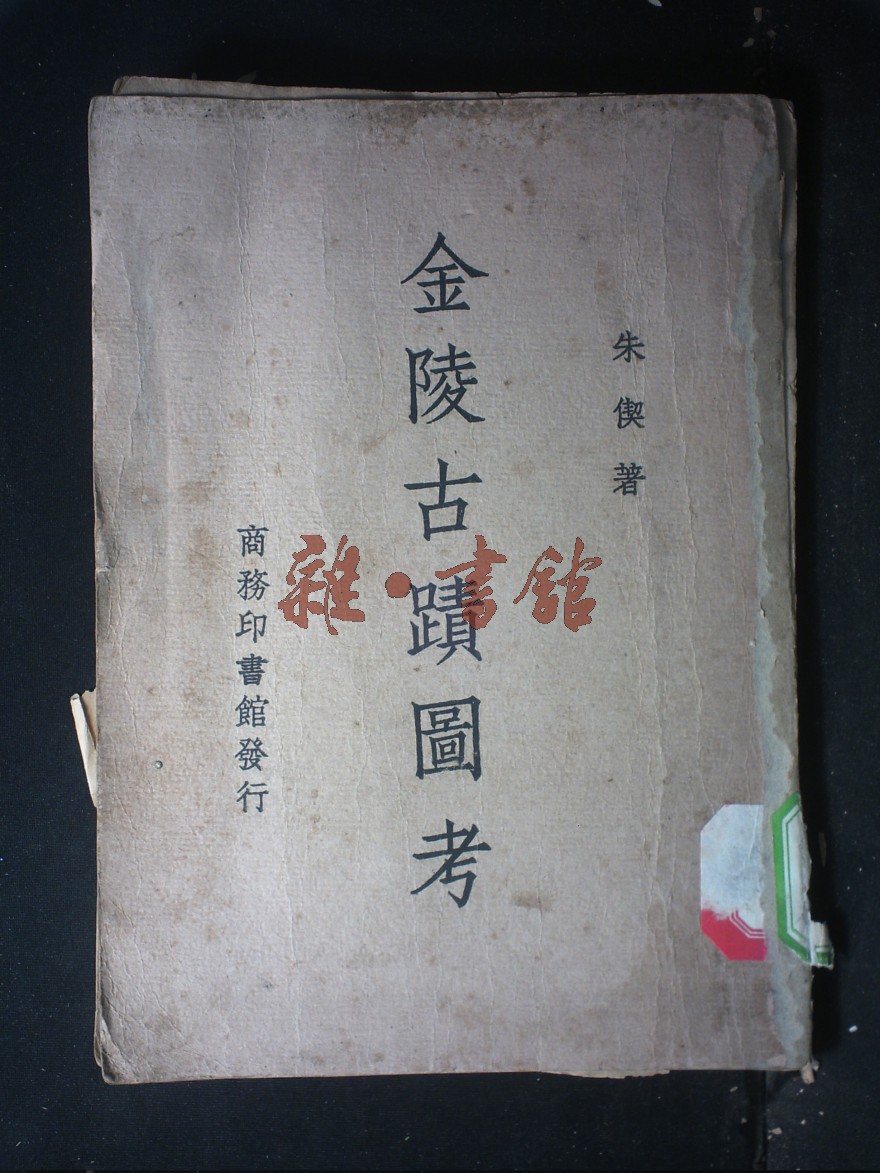 朱偰著
金陵古蹟圖考
商務印書館發行
雜·書館